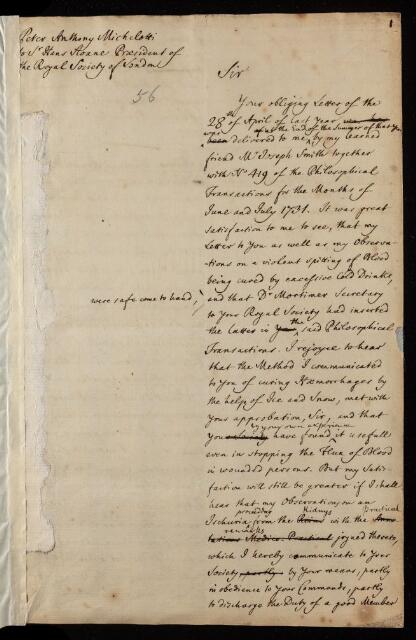 1
Peter Anthony Michelotti
to Sr. Hans Sloane Præsident of
the Royal Society of London
56
Sir
Your obliging Letter of the
28th of April of last year
was at the End of the Summer of that year
delivered to me by my learned
friend Mr. Joseph Smith together
with No. 419 of the Philosophical
Transactions for the Months of
June and July 1731. It was great
satisfaction to me to see, that my
Letter to You as well as my Observa-
-tions on a violent spitting of Blood
being cured by excessive Cold Drinks,
were safe come to hand, and that Dr. Mortimer Secretary
to your Royal Society had inserted
the latter in the said Philosophical
Transactions. I rejoyce to hear
that the Method I communicated
to you of curing Hæmorrhages by
the help of Ice and Snow, met with
your approbation, Sir, and that
by your own experience
you have found it usefull
even in stopping the Flux of Blood
in wounded persons. But my Satis-
faction will still be greater if I shall
hear that my Observations on an
proceeding Kidneys Practical
Ischuria from the with the
remarks
joyned thereto,
which I hereby communicate to Your
Society by Your means, partly
in obedience to Your Commands, partly
to discharge the Duty of a good Member